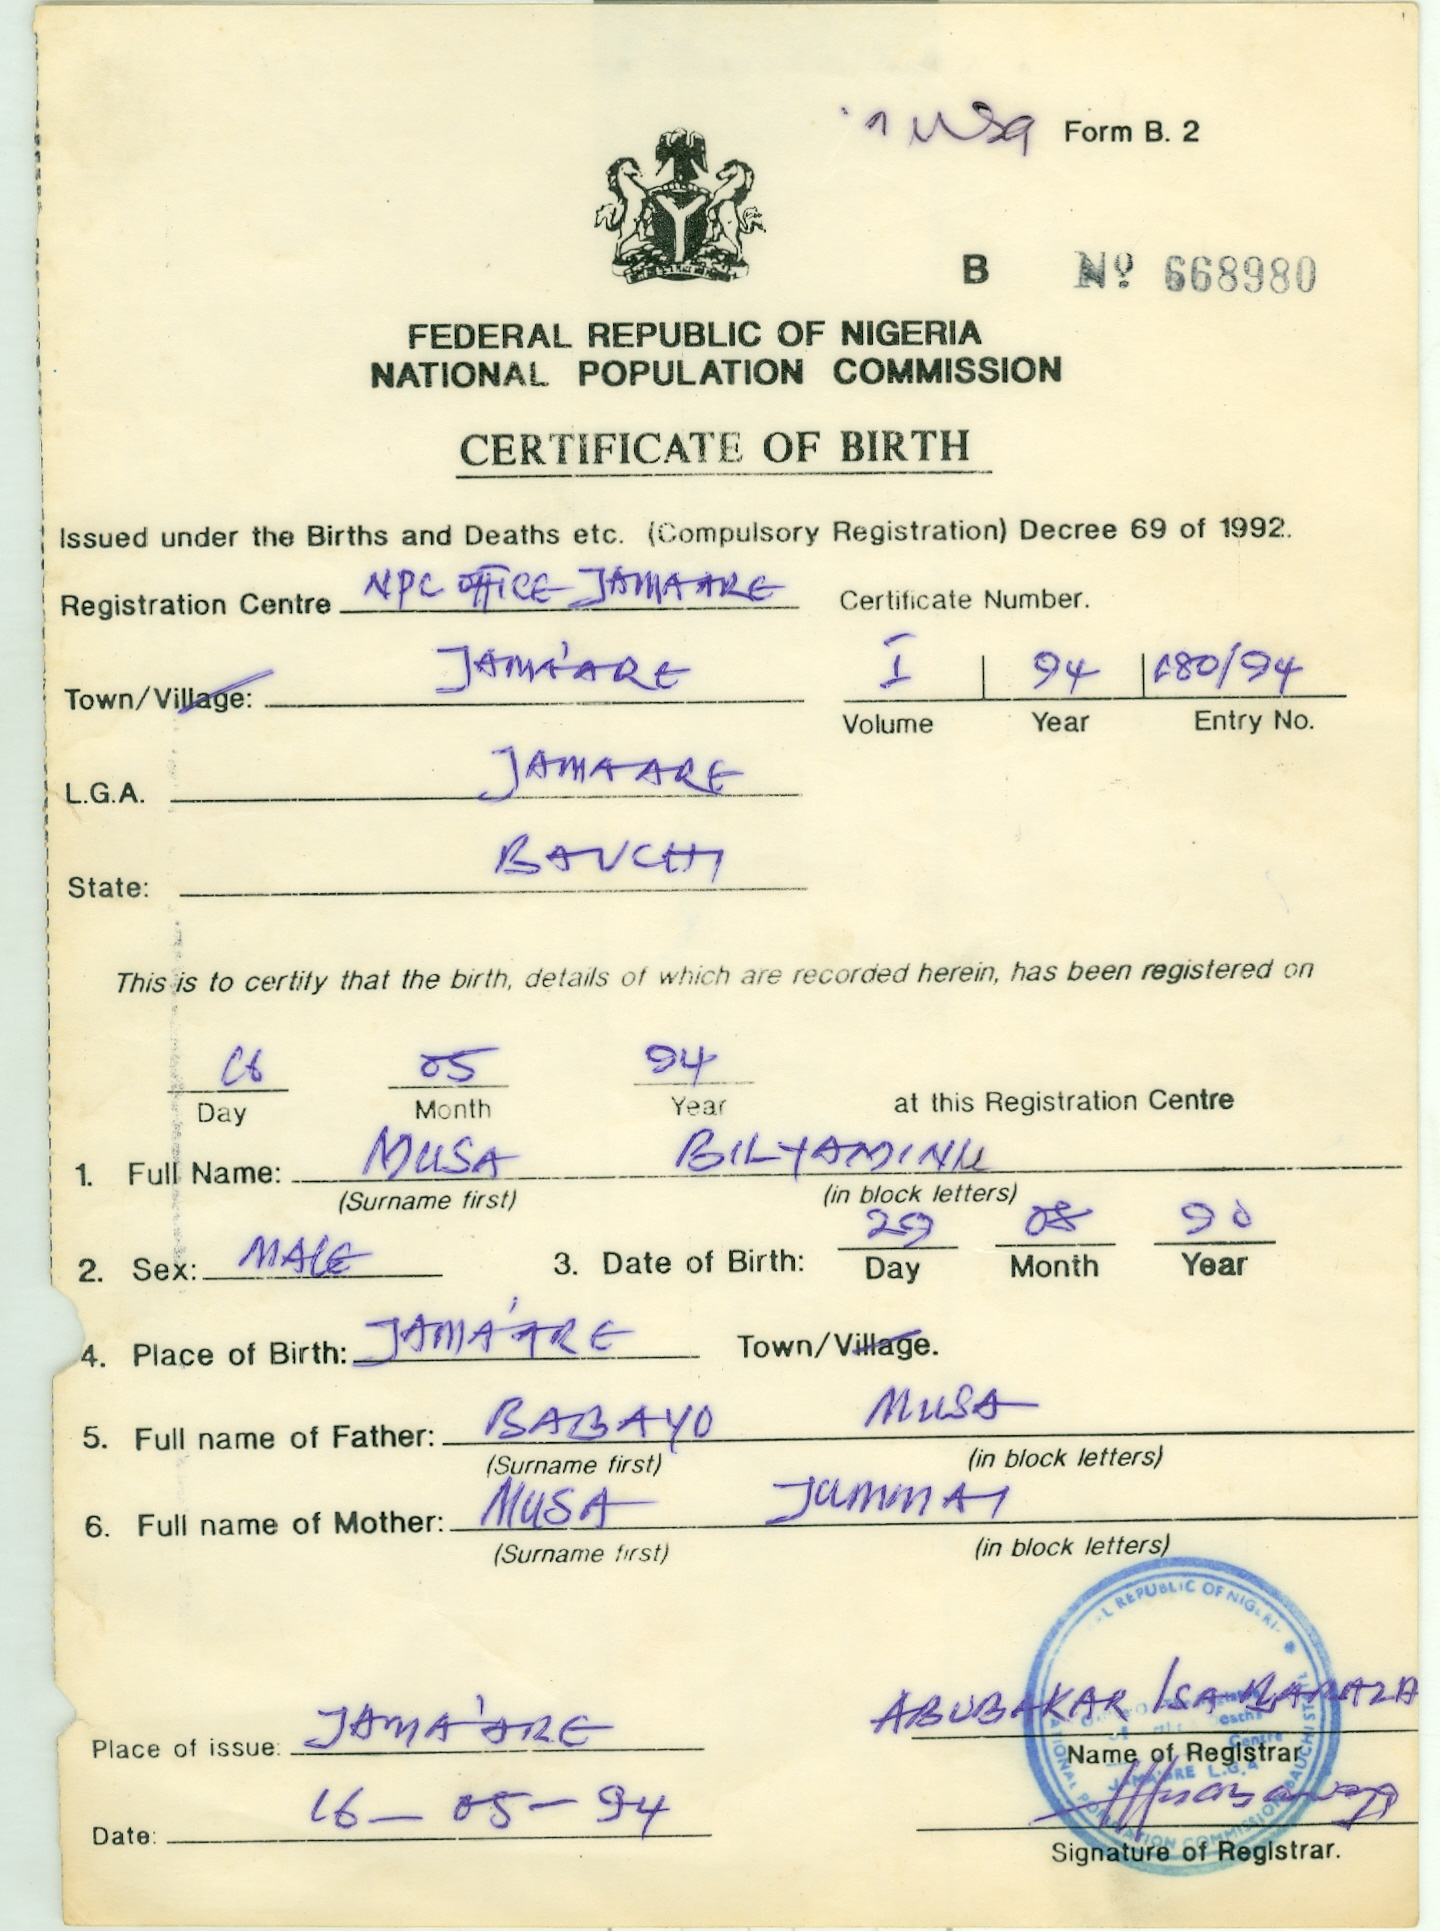 Musa Form B. 2
B Nº 668980
FEDERAL REPUBLIC OF NIGERIA
NATIONAL POPULATION COMMISSION
CERTIFICATE OF BIRTH
Issued under the Births and Deaths etc. (Compulsory Registration) Decree 69 of 1992.
Registration Centre NPC OFFICE JAMA'ARE Certificate Number.
Town/Village: JAMA'ARE I 94 180/94
Volume Year Entry No.
L.G.A. JAMA'ARE
State: BAUCHI
This is to certify that the birth, details of which are recorded herein, has been registered on
16 05 94
Day Month Year at this Registration Centre
1. Full Name: MUSA BILYAMINU
(Surname first) (in block letters)
2. Sex: MALE 3. Date of Birth: 29 08 90
Day Month Year
4. Place of Birth: JAMA'ARE Town/Village.
5. Full name of Father: BABAYO MUSA
(Surname first) (in block letters)
6. Full name of Mother: MUSA JUMMAI
(Surname first) (in block letters)
REPUBLIC OF NIGERI
ABUBAKAR ISA
Place of issue: JAMA'ARE
Name of Registrar
JAMA'ARE L.G.A
Date: 16-05-94
POPULATION COMMISSION BAUCHI STATE
Signature of Registrar.